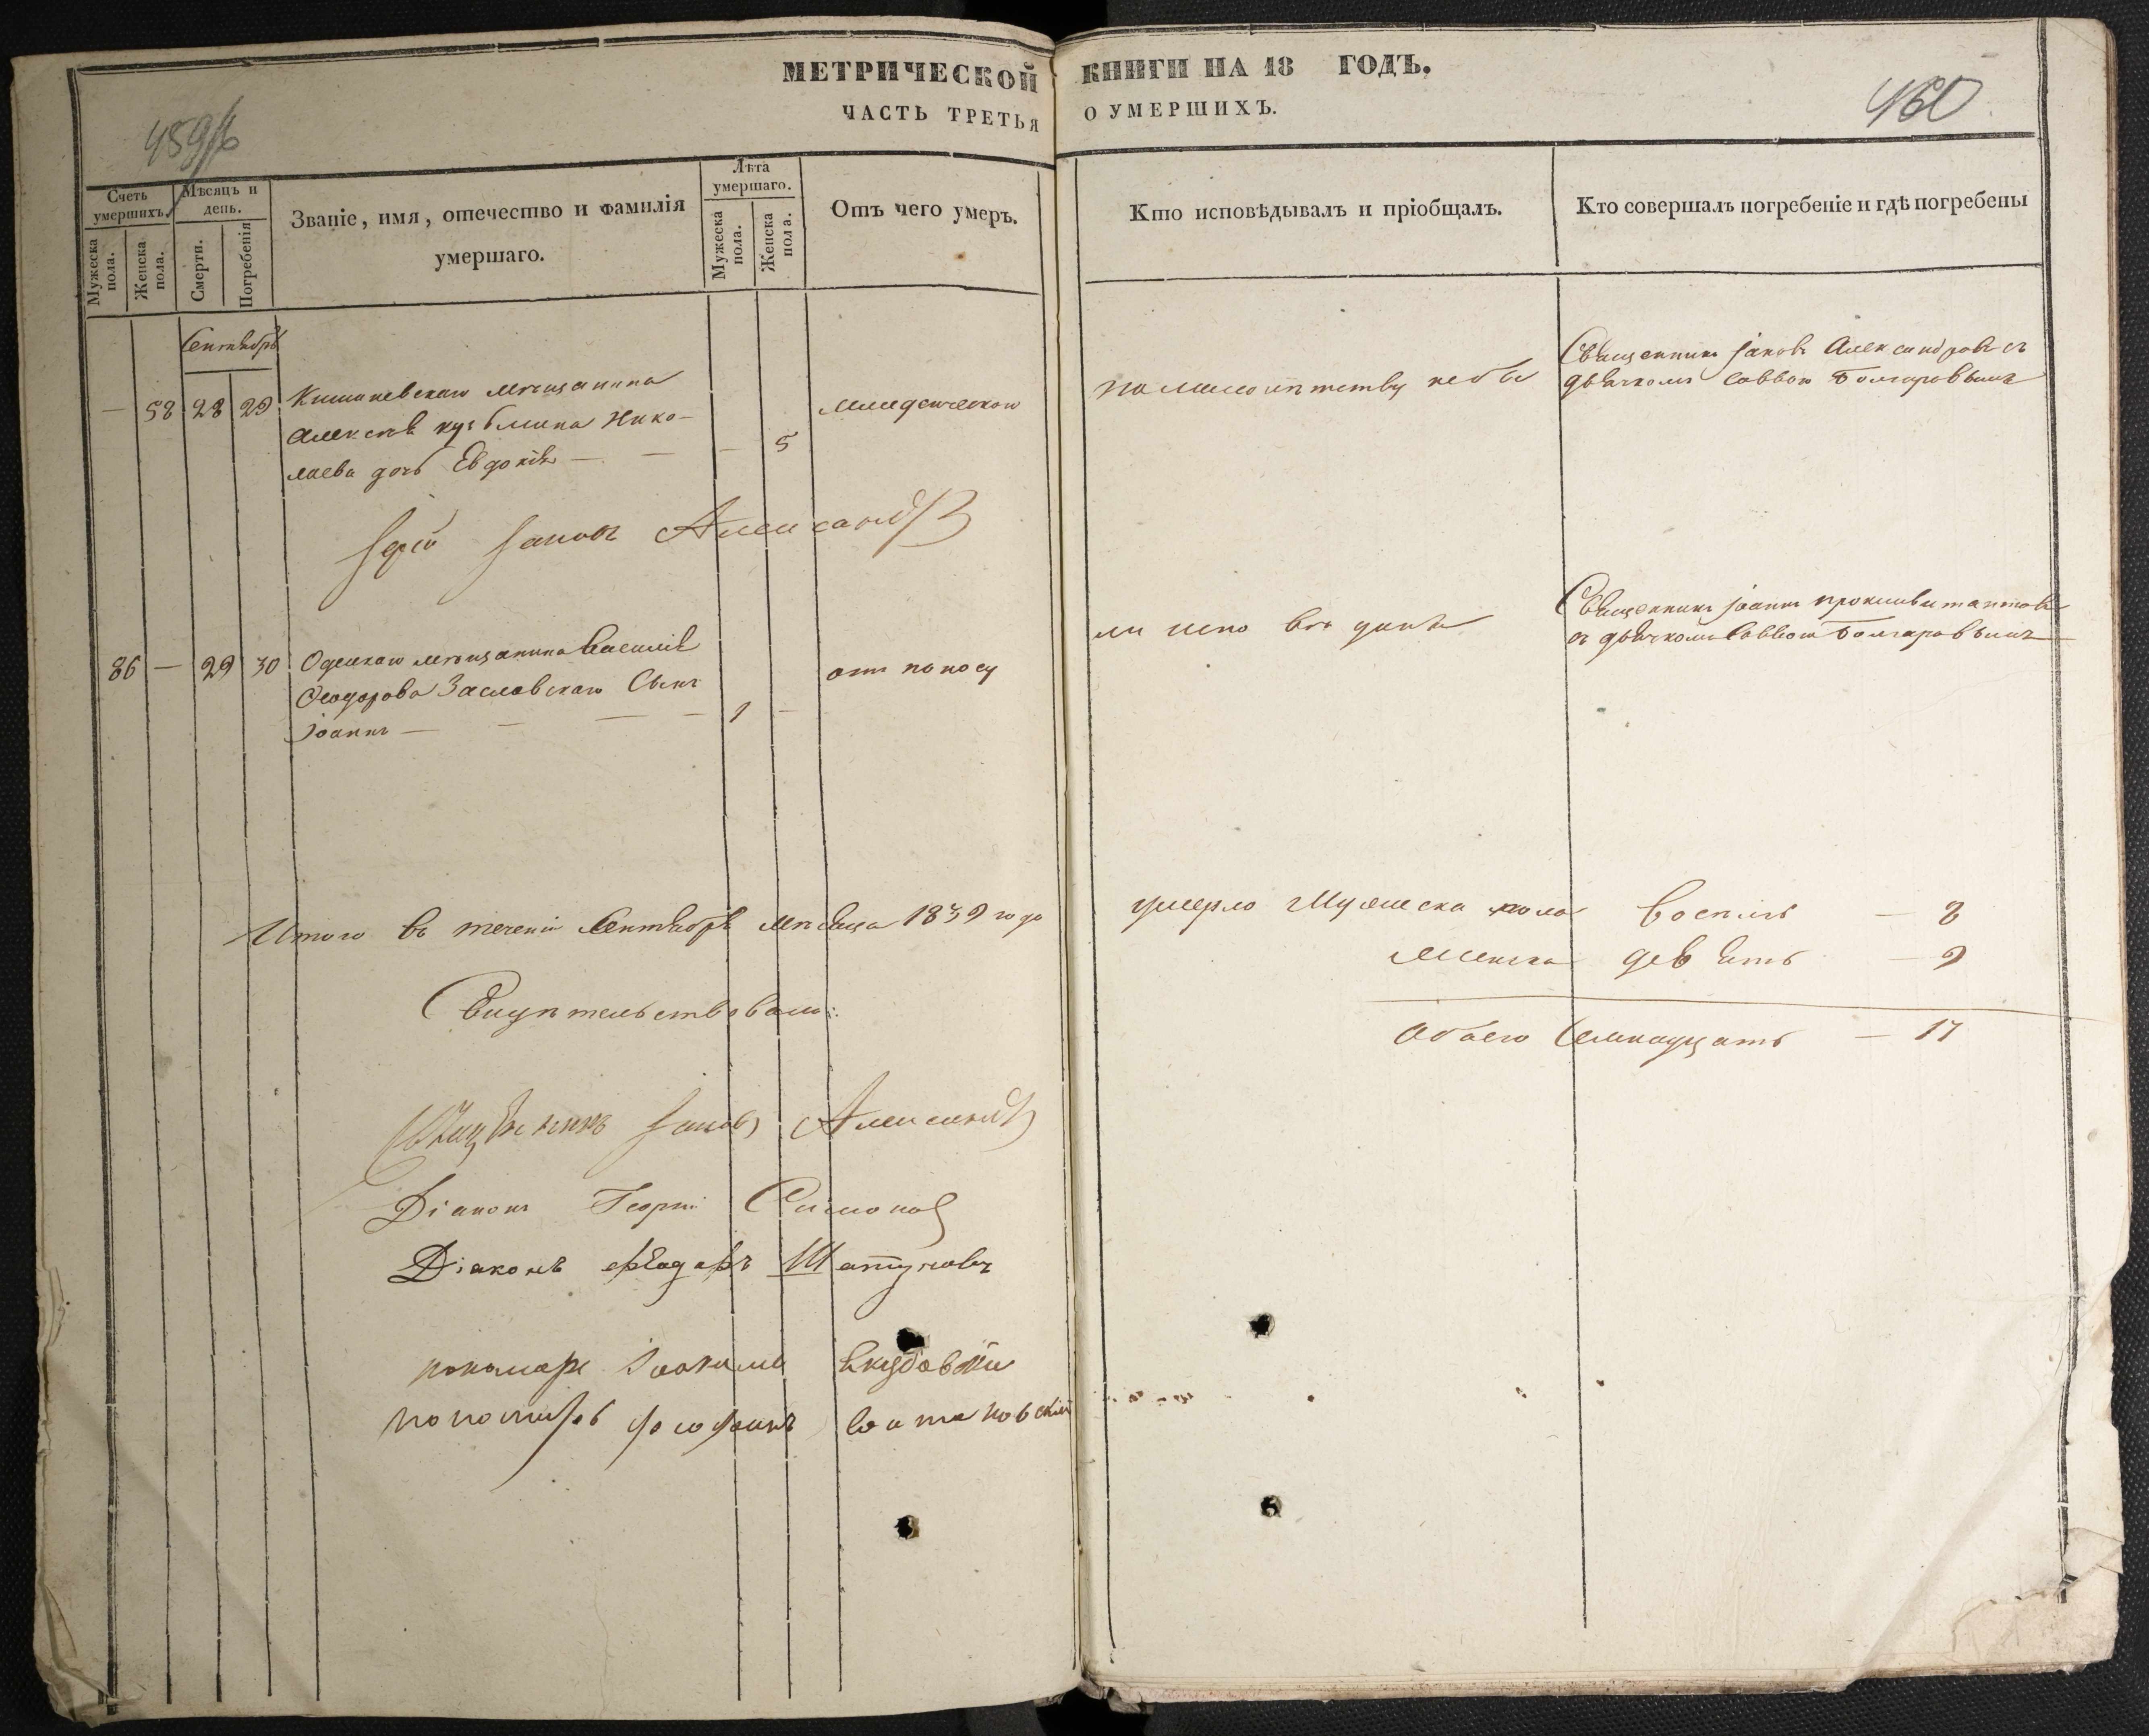 МЕТРИЧЕСКОЙ КНИГИ НА 18 ГОДЪ.
ЧАСТЬ ТРЕТЬЯ О УМЕРШИХЪ.
459об
460
Счетъ умершихъ.
Мужеска пола.
Женска пола.
Мѣсяцъ и день.
Смерти.
Погребенія
Званіе, имя, отечество и фамилія
умершаго.
Лѣта умершаго.
Мужеска пола.
Женска пола.
Отъ чего умеръ.
Кто исповѣдывалъ и пріобщалъ.
Кто совершалъ погребеніе и гдѣ погребены
Сентябрь
— 58 28 29
Кишиневскаго мѣщанина
Алексѣя Кузьмина Нико-
лаева дочь Евдокія — — — 5
младенческою
по малолѣтству не бы
Священникъ Іаковъ Александровъ съ
дьячкомъ Саввою Болгаровымъ
Іерей Іаковъ Александровъ
86 — 29 30
Одескаго мѣщанина Василія
Ѳеодорова Заславскаго Сынъ
Іоаннъ — — — — 1 —
отъ поносу
ли исповѣданы
Священникъ Іоаннъ
съ дьячкомъ Саввою Болгаровымъ
Итого въ теченіи Сентября мѣсяца 1839 года
умерло Мужеска пола восемь — 8
Женска девять — 9
Обоего Семнадцать — 17
Свидѣтельствовали:
Священникъ Іаковъ Александровъ
Діаконъ Георгій Симонов
Діаконъ Ѳеодоръ Шатуновъ
пономарь Іоакимъ Якубовскій
пономарь